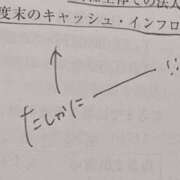 度末のキャッシュ・インフロ
たしかに
!!